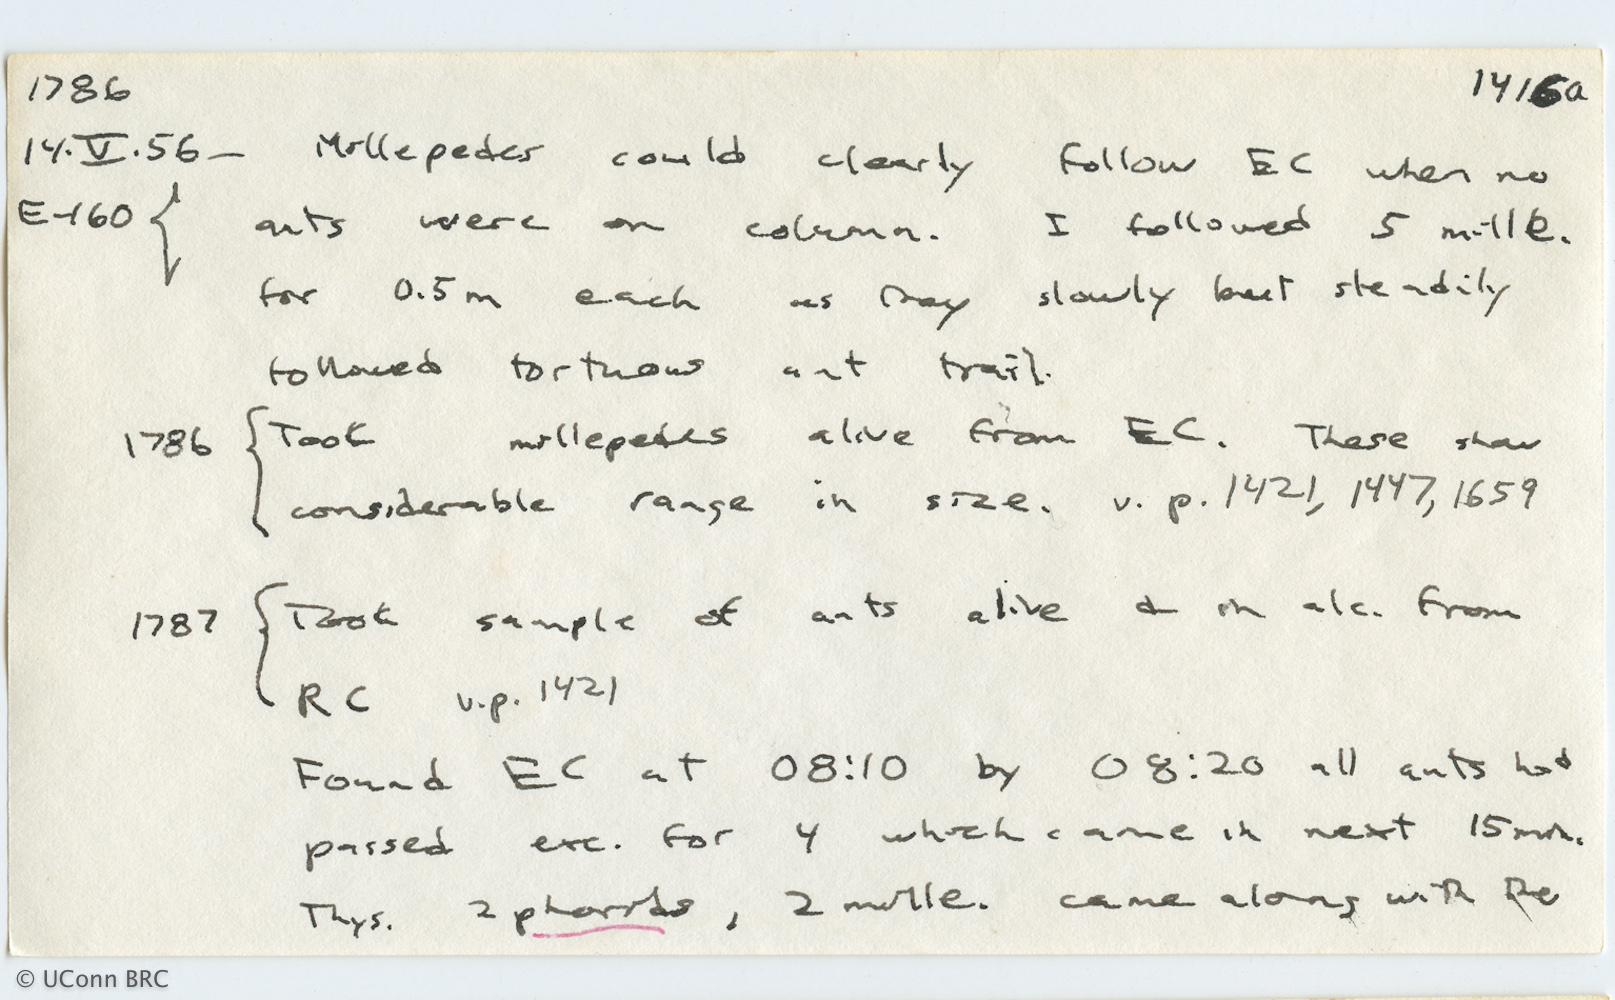 1786 1416a
14.V.56 — Millepedes could clearly follow EC when no
E-160 { ants were on column. I followed 5 mille.
for 0.5m each as they slowly but steadily
followed tortuous ant trail.
1786 { Took millepedes alive from EC. These show
considerable range in size. v. p. 1421, 1447, 1659
1787 { Took sample of ants alive & in alc. from
RC v.p. 1421
Found EC at 08:10 by 08:20 all ants had
passed exc. for 4 which came in next 15 min.
Thys. 2 phorids, 2 mille. came along with the
© UConn BRC